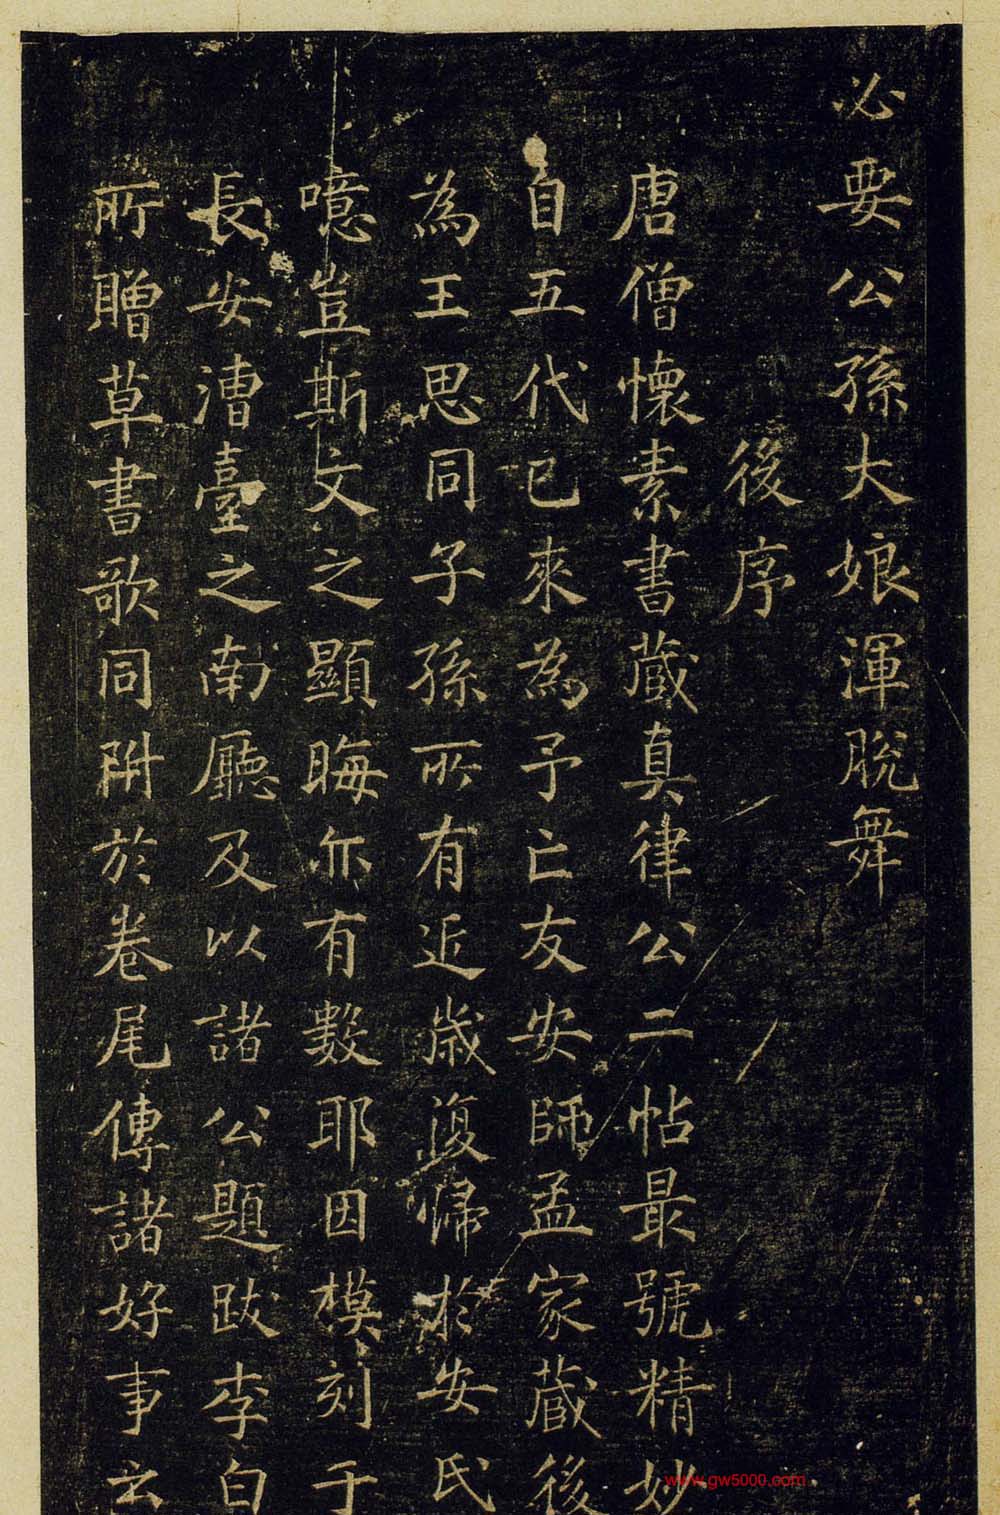 必要公孫大娘渾脫舞
後序
唐僧懷素書藏真律公二帖最號精妙
自五代已來為予亡友安師孟家藏後
為王思同子孫所有近歲復歸於安氏
噫豈斯文之顯晦亦有數耶因模刻于
長安漕臺之南廳及以諸公題跋李白
所贈草書歌同附於卷尾傳諸好事云
www.gw5000.com